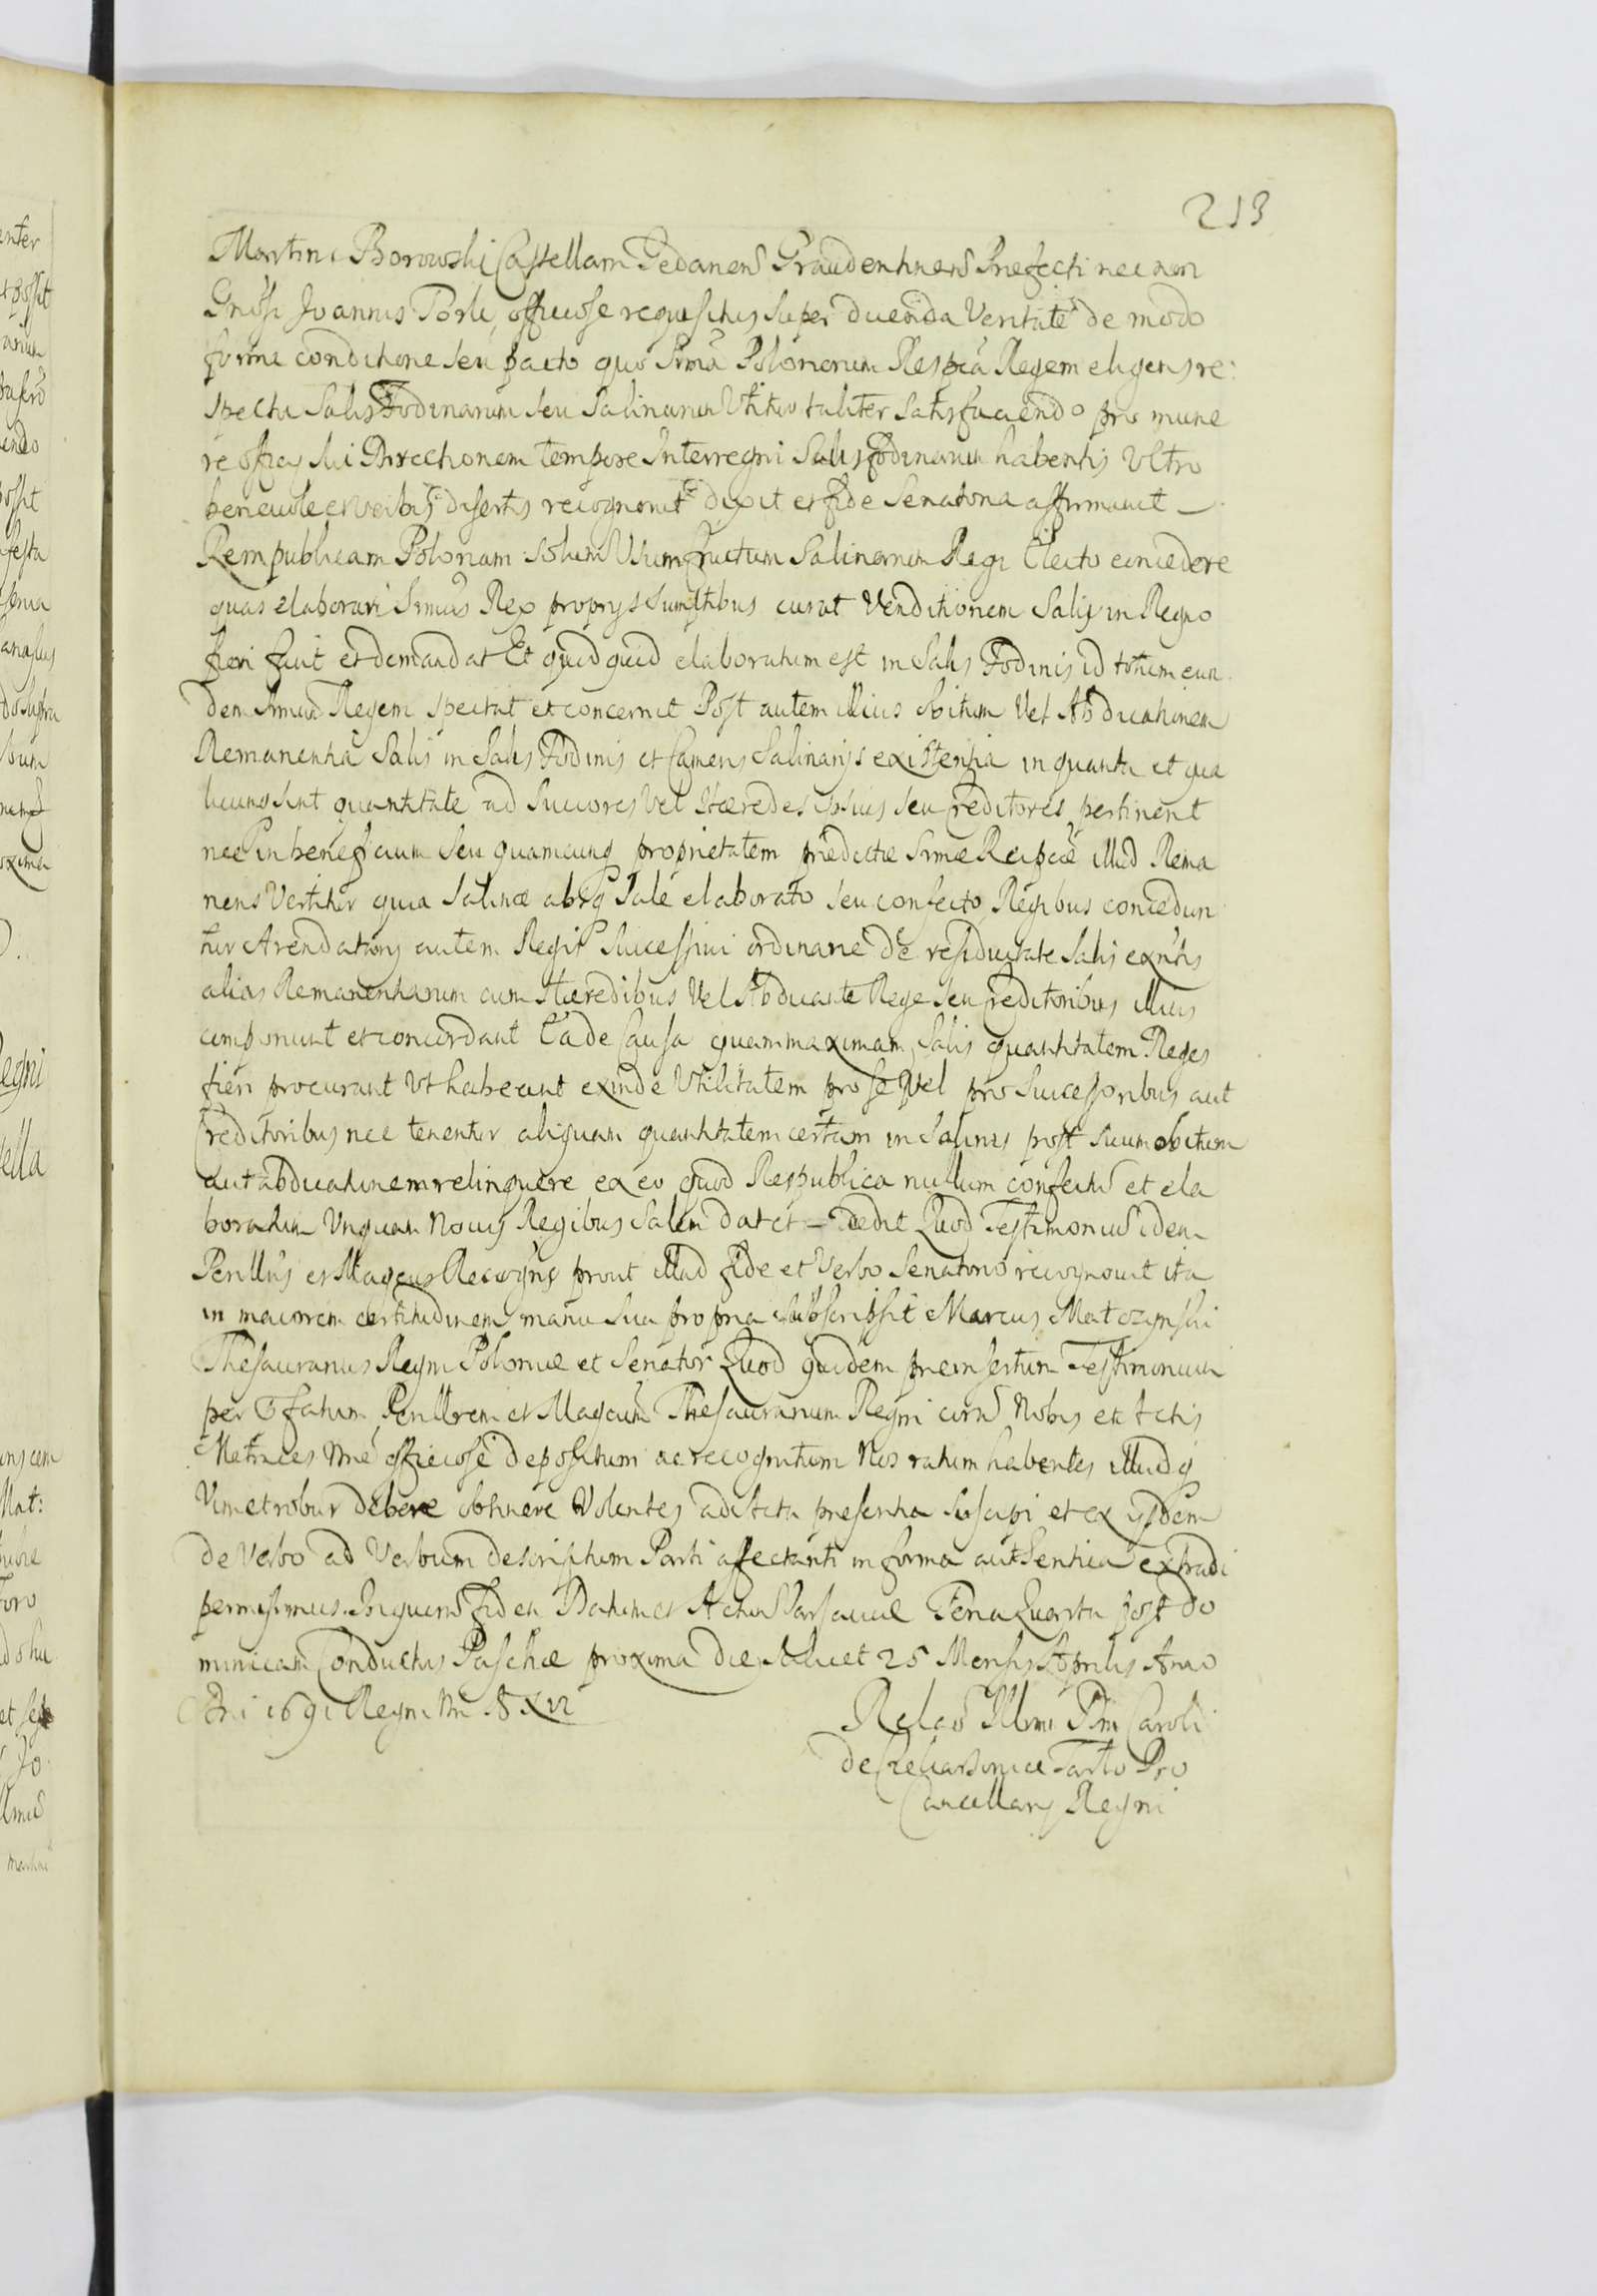 213
Martini Borowski Castellani Gedanens Graudentinens Praefecti nec non
Gnosi Joannis Porle officiose requisitus super dicenda Veritate de modo
forma conditione seu pacto quo Srma Polonorum Respca Regem eligens re:
spectu Salis Fodinarum seu Salinarum Utitur taliter satisfaciendo pro mune
re officij sui Directionem tempore Interregni Salis fodinarum habentis Ultro
benevole et verbis disertis recognovit dixit et fide Senatoria affirmavit
Rempublicam Polonam solum Usumfructum Salinarum Regi Electo concedere
quas elaborari Srmus Rex proprys sumptibus curat Venditionem Salis in Regno
fieri facit et demandat Et quidquid elaboratum est in Salis Fodinis id totum eun
dem Srmum Regem spectat et concernit Post autem illius obitum Vel Abdicationem
Remanentia Salis in Salis Fodinis et Cameris Salinarijs existentia in quanta et qua
licunq sint quantitate ad Succores Vel Haeredes ipsius seu Creditores pertinent
nec in beneficium seu quamcunq proprietatem praedictae Srmae Reipcae illud Rema
nens Vertitur quia Salinae absq Sale elaborato seu confecto Regibus concedun
tur Arendatorij autem Regij Successivi ordinarie de residuitate Salis exntis
alias Remanentiarum cum Haeredibus Vel Abdicante Rege seu Creditoribus illius
componunt et concordant Ea de Causa quam maximam Salis quantitatem Reges
fieri procurant Ut habeant exinde Utilitatem pro se Vel pro Successoribus aut
Creditoribus nec tenentur aliquam quantitatem certam in Salinis post suum obitum
aut abdicationem relinquere ex eo quod Respublica nullum confectum et ela
boratum Unquam Novis Regibus Salem daret dedit Quod Testimonium idem
Perillris et Magcus Recogns prout illud fide et Verbo Senatorio recognovit ita
in maiorem certitudinem manu sua propria subscripsit Marcus Matczynski
Thesaurarius Regni Poloniae et Senator Quod quidem praeinsertum Testimonium
per Praefatum Perillrem et Magcum Thesaurarium Regni coram Nobis et Actis
Metrices Nrae officiose depositum ac recognitum Nos ratum habentes illudq
Vim et robur debere obtinere Volentes ad Acta praesentia suscipi et ex ijsdem
de Verbo ad Verbum descriptum Parti affectanti in forma authentica extradi
permisimus. In quorum fidem Datum et Actum Varsaviae Feria Quarta post Do
minicam Conductus Paschae proxima die scilicet 25 Mensis Aprilis Anno
Dni 1691 Regni Nri XVII
Relao Illmi Dni Caroli
de Tarlo Pro
Cancellarij Regni